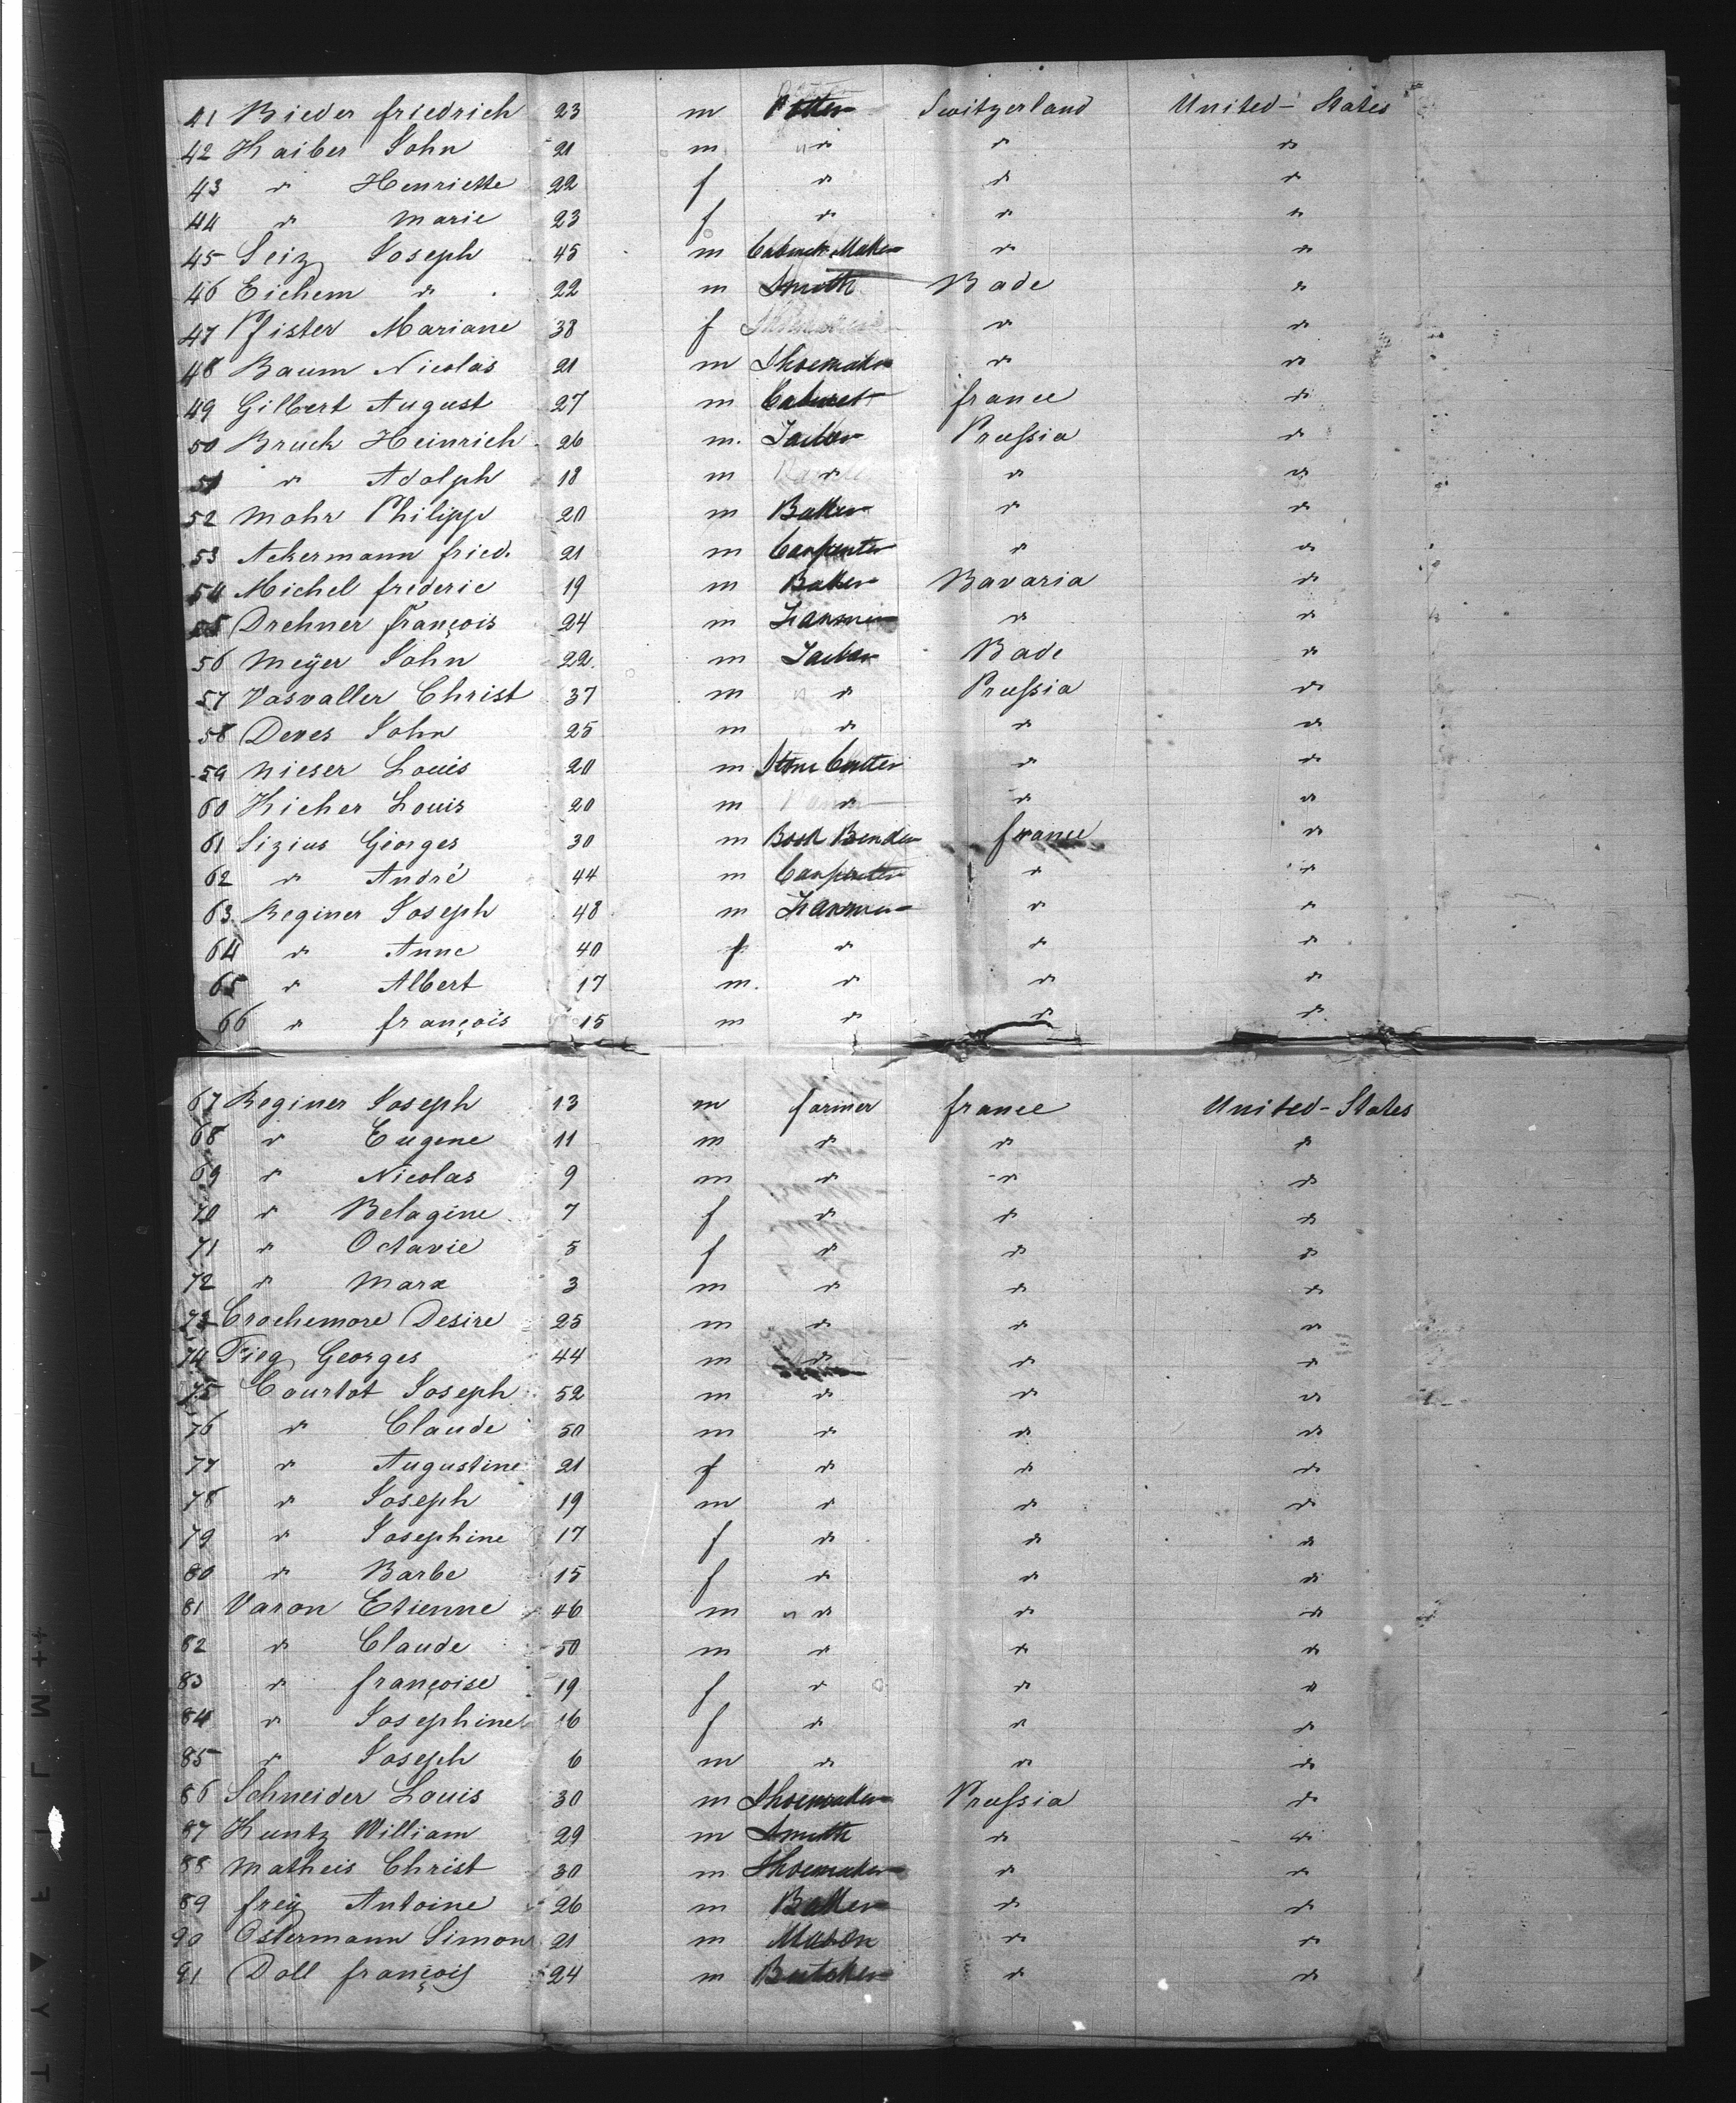 41 Bieder friedrich 23 m Potter Switzerland United-States
42 Kaiber John 21 m " " "
43 " Henriette 22 f " " "
44 " Marie 23 f " " "
45 Seiz Joseph 45 m Cabinet Maker " "
46 Eichem " 22 m Smith Bade "
47 Pfister Mariane 38 f " "
48 Baum Nicolas 21 m Shoemaker " "
49 Gilbert August 27 m Cabinet france "
50 Bruch Heinrich 26 m. Tailor Prussia "
51 " Adolph 18 m " " "
52 Mohr Philipp 20 m Baker " "
53 Ackermann fried. 21 m Carpenter " "
54 Michel frederic 19 m Baker Bavaria "
55 Drehner françois 24 m Farmer " "
56 Meÿer John 22 m Tailor Bade "
57 Vasvaller Christ 37 m " Prussia "
58 Deves John 25 m " " "
59 Nieser Louis 20 m Stone Cutter " "
60 Kicher Louis 20 m " " "
61 Sizius Georges 30 m Book Bender france "
62 " André 44 m Carpenter " "
63 Reginer Joseph 48 m Farmer " "
64 " Anne 40 f " " "
65 " Albert 17 m. " " "
66 " françois 15 m " " "
67 Reginer Joseph 13 m farmer france United-States
68 " Eugene 11 m " " "
69 " Nicolas 9 m " " "
70 " Belagine 7 f " " "
71 " Octavie 5 f " " "
72 " Marx 3 m " " "
73 Crochemore Desire 25 m " " "
74 Fieg Georges 44 m " " "
75 Courtot Joseph 52 m " " "
76 " Claude 50 m " " "
77 " Augustine 21 f " " "
78 " Joseph 19 m " " "
79 " Josephine 17 f " " "
80 " Barbe 15 f " " "
81 Varon Etienne 46 m " " "
82 " Claude 50 m " " "
83 " françoise 19 f " " "
84 " Josephine 16 f " " "
85 " Joseph 6 m " " "
86 Schneider Louis 30 m Shoemaker Prussia "
87 Kuntz William 29 m Smith " "
88 Matheis Christ 30 m Shoemaker " "
89 freÿ Antoine 26 m Baker " "
90 Ostermann Simon 21 m Mason " "
91 Doll françois 24 m Butcher " "